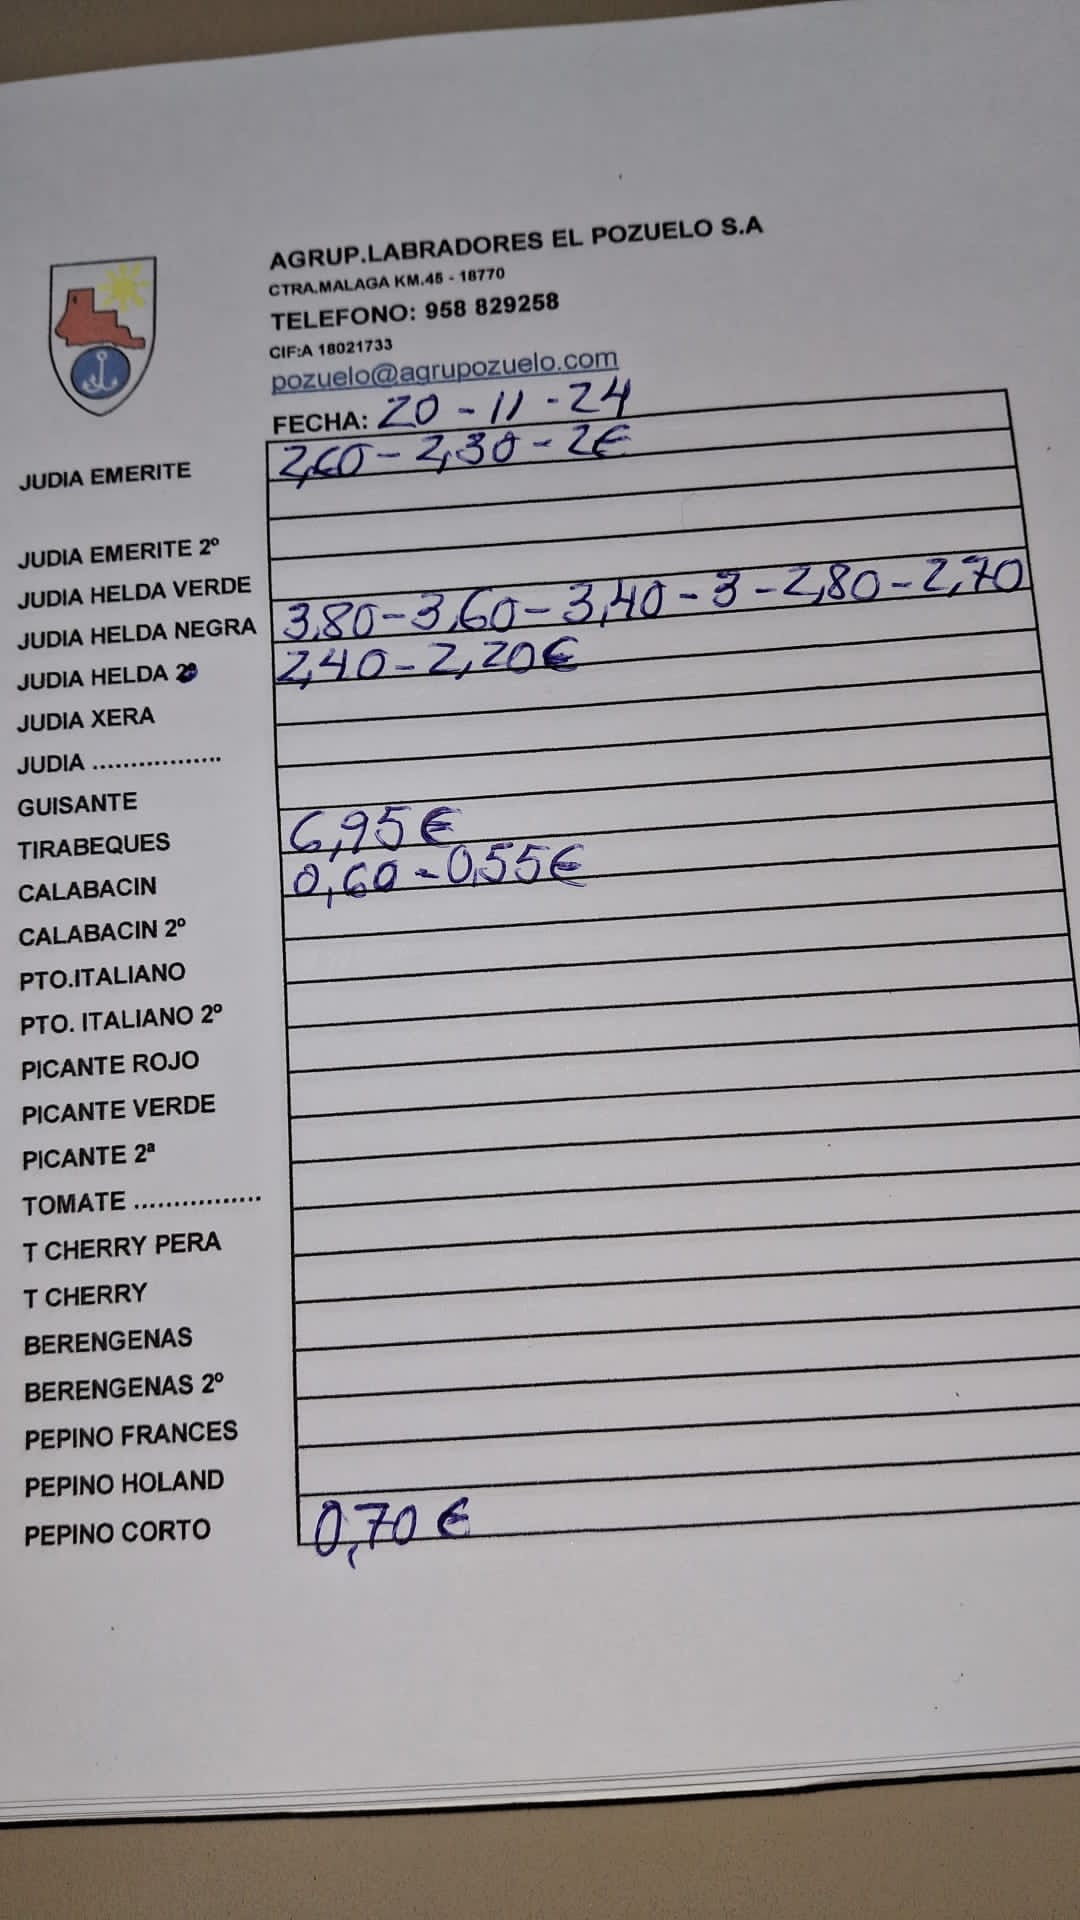 AGRUP.LABRADORES EL POZUELO S.A
CTRA.MALAGA KM.45 - 18770
TELEFONO: 958 829258
CIF:A 18021733
pozuelo@agrupozuelo.com
FECHA: 20-11-24
JUDIA EMERITE 2,60-2,30-2€
JUDIA EMERITE 2º
JUDIA HELDA VERDE
JUDIA HELDA NEGRA 3,80-3,60-3,40-3-2,80-2,70
JUDIA HELDA 2º 2,40-2,20€
JUDIA XERA
JUDIA .................
GUISANTE
TIRABEQUES 6,95€
CALABACIN 0,60-0,55€
CALABACIN 2º
PTO.ITALIANO
PTO. ITALIANO 2º
PICANTE ROJO
PICANTE VERDE
PICANTE 2ª
TOMATE ................
T CHERRY PERA
T CHERRY
BERENGENAS
BERENGENAS 2º
PEPINO FRANCES
PEPINO HOLAND
PEPINO CORTO 0,70 €